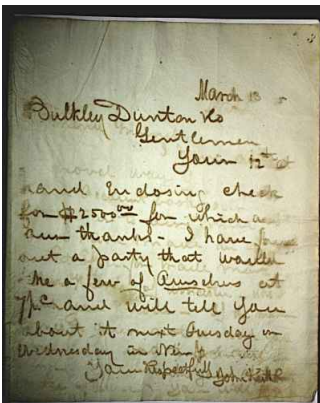 March 13
Bulkley Dunton & Co
Gentlemen
Yours 12th at
hand Enclosing check
for $2500.00 for which a
my thanks - I have found
out a party that would
me a few of at
7½c and will tell you
about it next Tuesday or
Wednesday in New
Yours Respectfully John